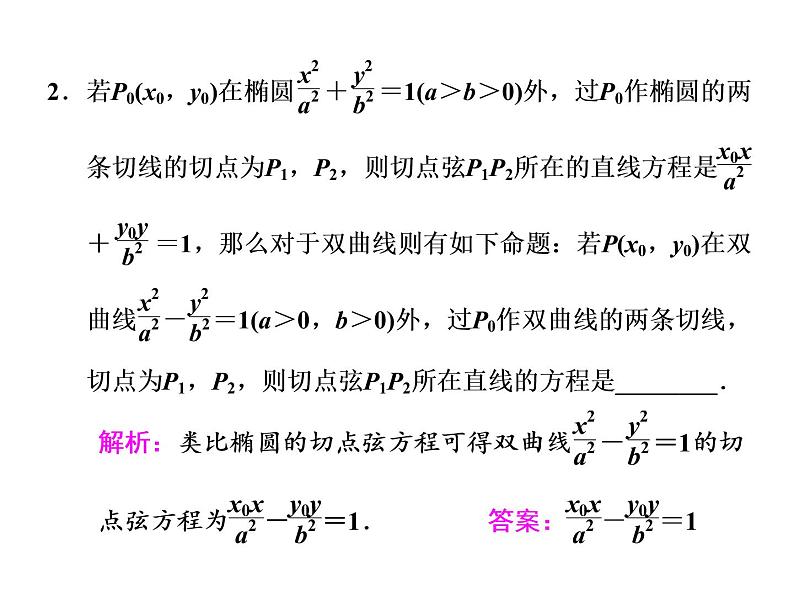 2．若P₀(x₀，y₀)在椭圆x²/a²＋y²/b²＝1(a＞b＞0)外，过P₀作椭圆的两
条切线的切点为P₁，P₂，则切点弦P₁P₂所在的直线方程是x₀x/a²
＋y₀y/b²＝1，那么对于双曲线则有如下命题：若P(x₀，y₀)在双
曲线x²/a²－y²/b²＝1(a＞0，b＞0)外，过P₀作双曲线的两条切线，
切点为P₁，P₂，则切点弦P₁P₂所在直线的方程是________．
解析：类比椭圆的切点弦方程可得双曲线x²/a²－y²/b²＝1的切
点弦方程为x₀x/a²－y₀y/b²＝1． 答案：x₀x/a²－y₀y/b²＝1